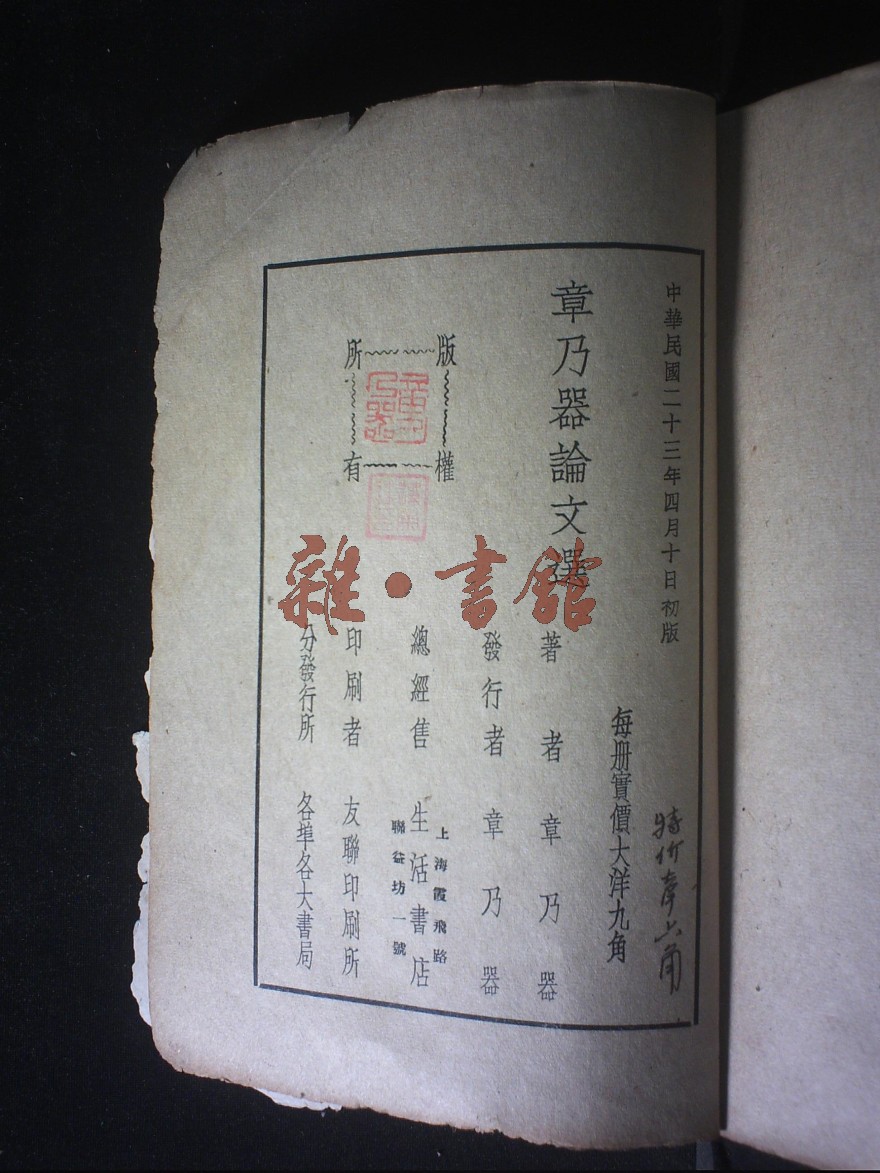 中華民國二十三年四月十日初版
每册實價大洋九角
章乃器論文選
著者章乃器
發行者章乃器
版權所有
章乃器
總經售 生活書店
上海霞飛路
聯益坊一號
印刷者 友聯印刷所
分發行所 各埠各大書局
雜·書館